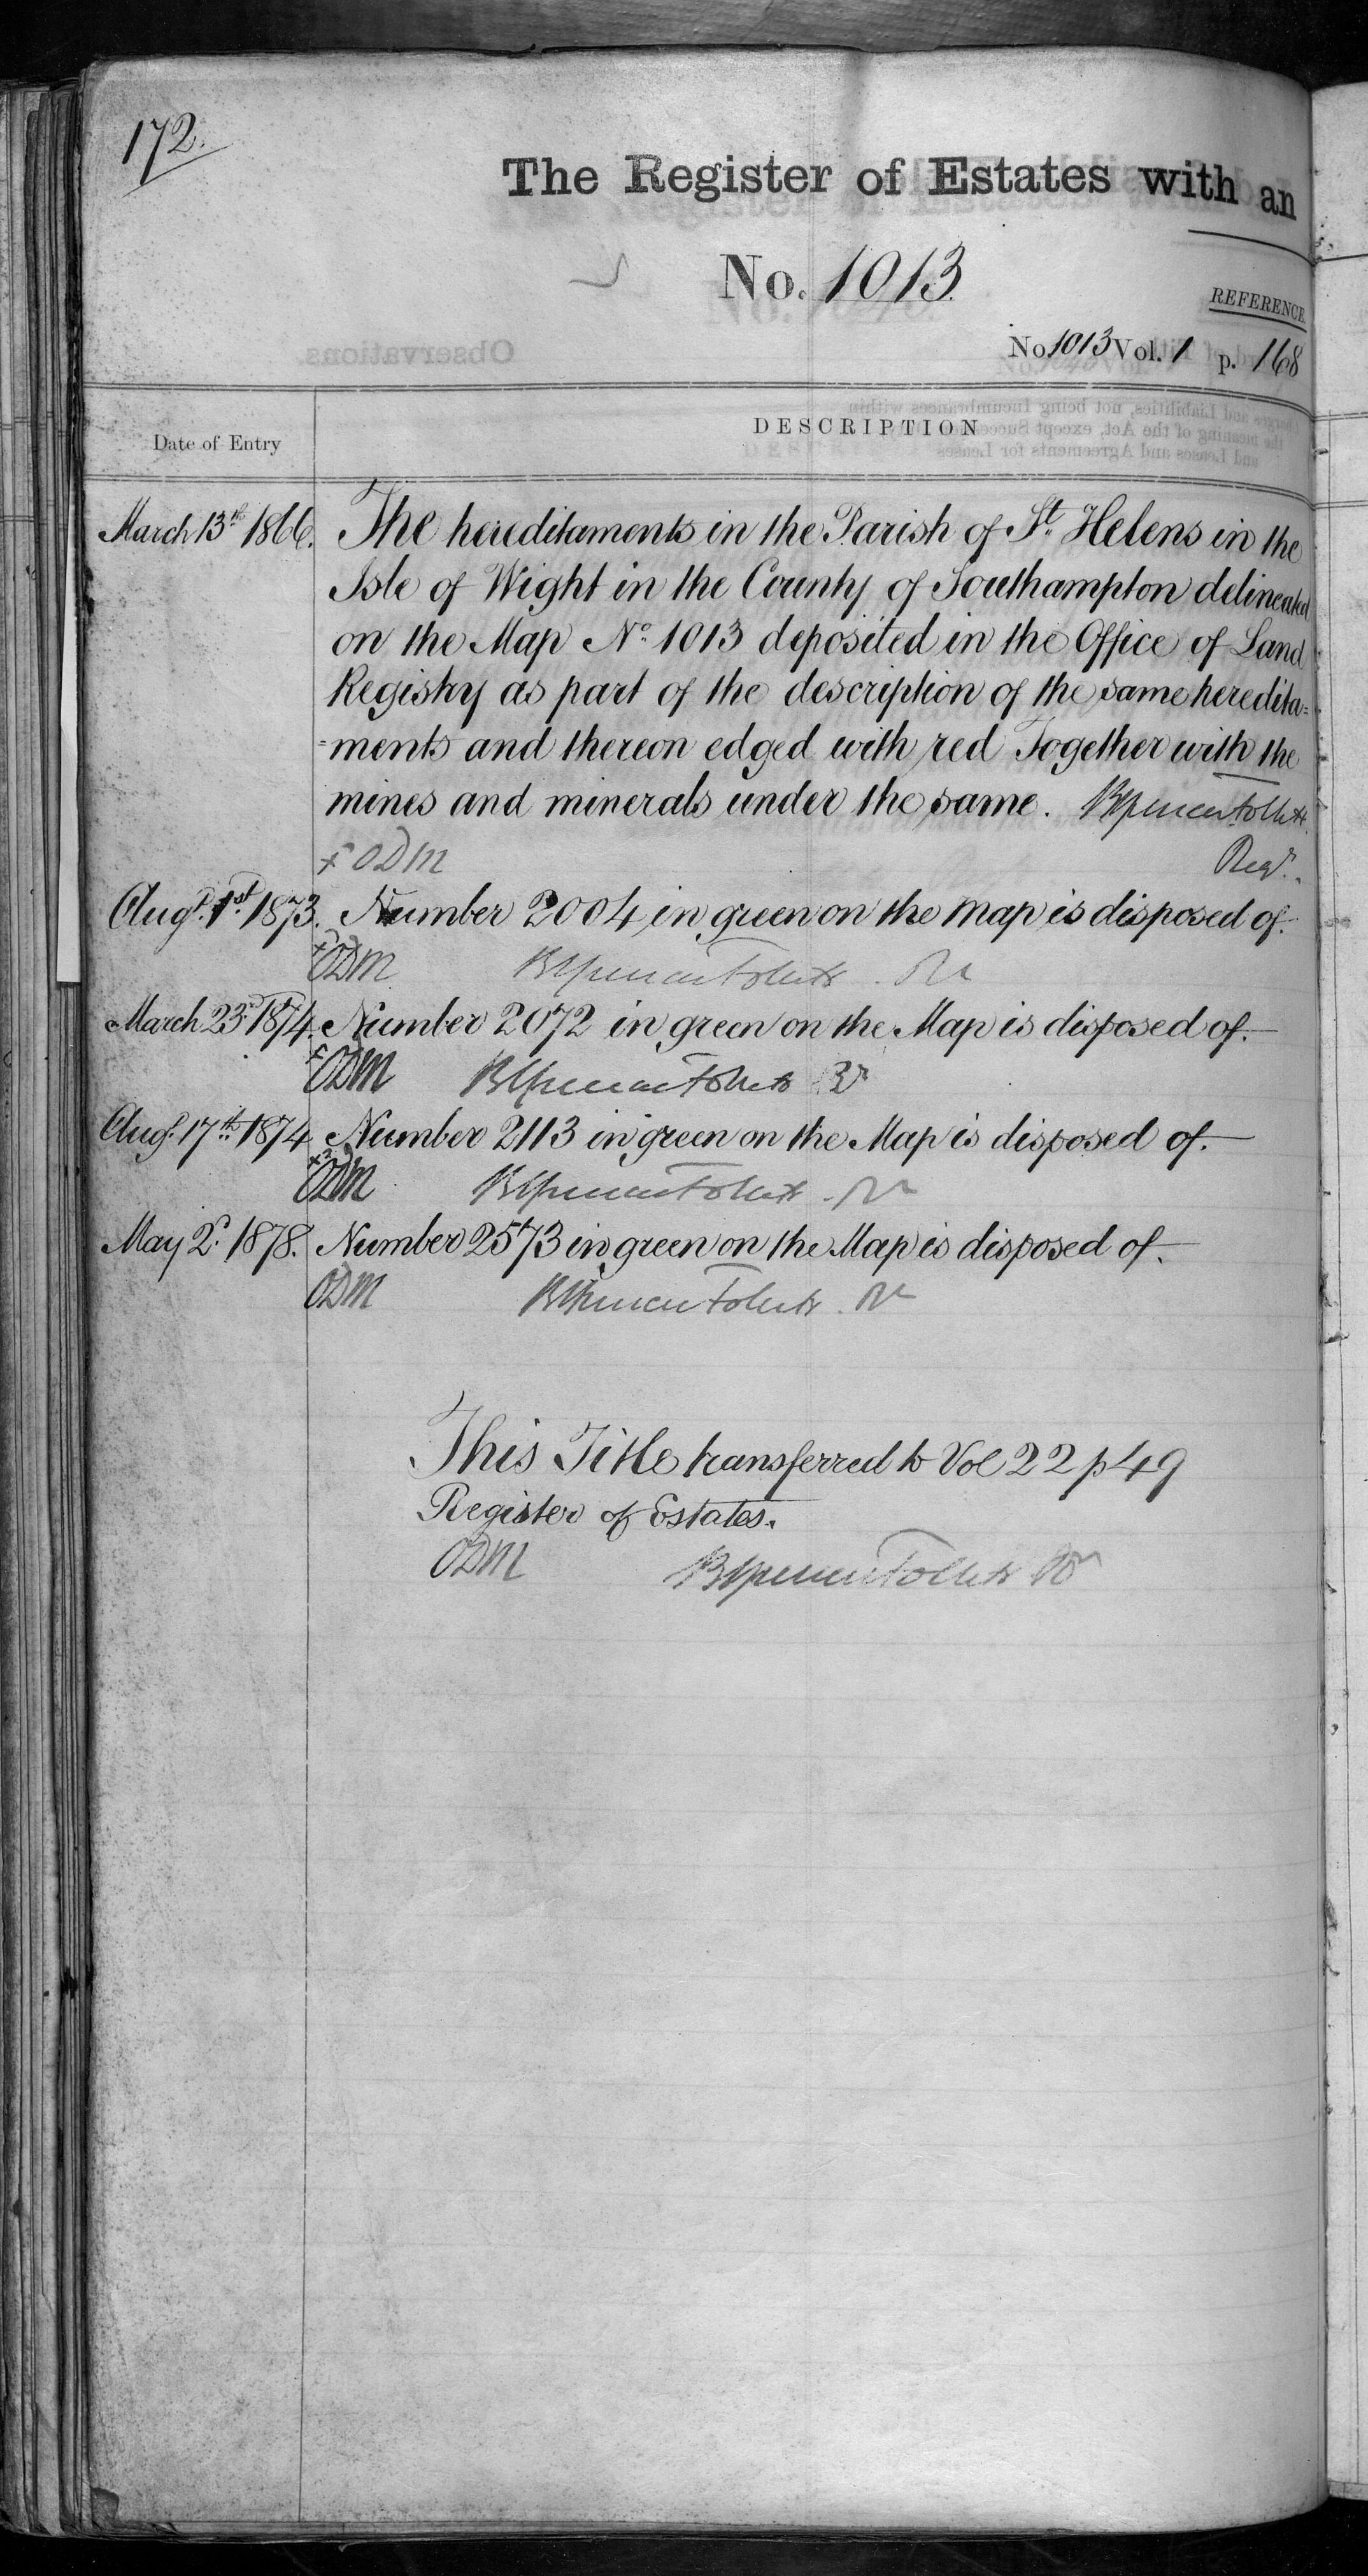 172.
The Register of Estates with an
No. 1013
REFERENCE
No 1013 Vol. 1 p. 168
Date of Entry
DESCRIPTION
March 13th 1866. The hereditaments in the Parish of St. Helens in the
Isle of Wight in the County of Southampton delineated
on the Map No. 1013 deposited in the Office of Land
Registry as part of the description of the same heredita=
=ments and thereon edged with red Together with the
mines and minerals under the same. Brent Spencer Follett
ODM Regr.
Augt. 1st 1873. Number 2004 in green on the map is disposed of.
ODM
March 23d. 1874. Number 2072 in green on the Map is disposed of.
ODM
Augt. 17th 1874 Number 2113 in green on the Map is disposed of.
ODM
May 2d. 1878. Number 2573 in green on the Map is disposed of.
ODM
This Title transferred to Vol 22 p 49
Register of Estates.
ODM